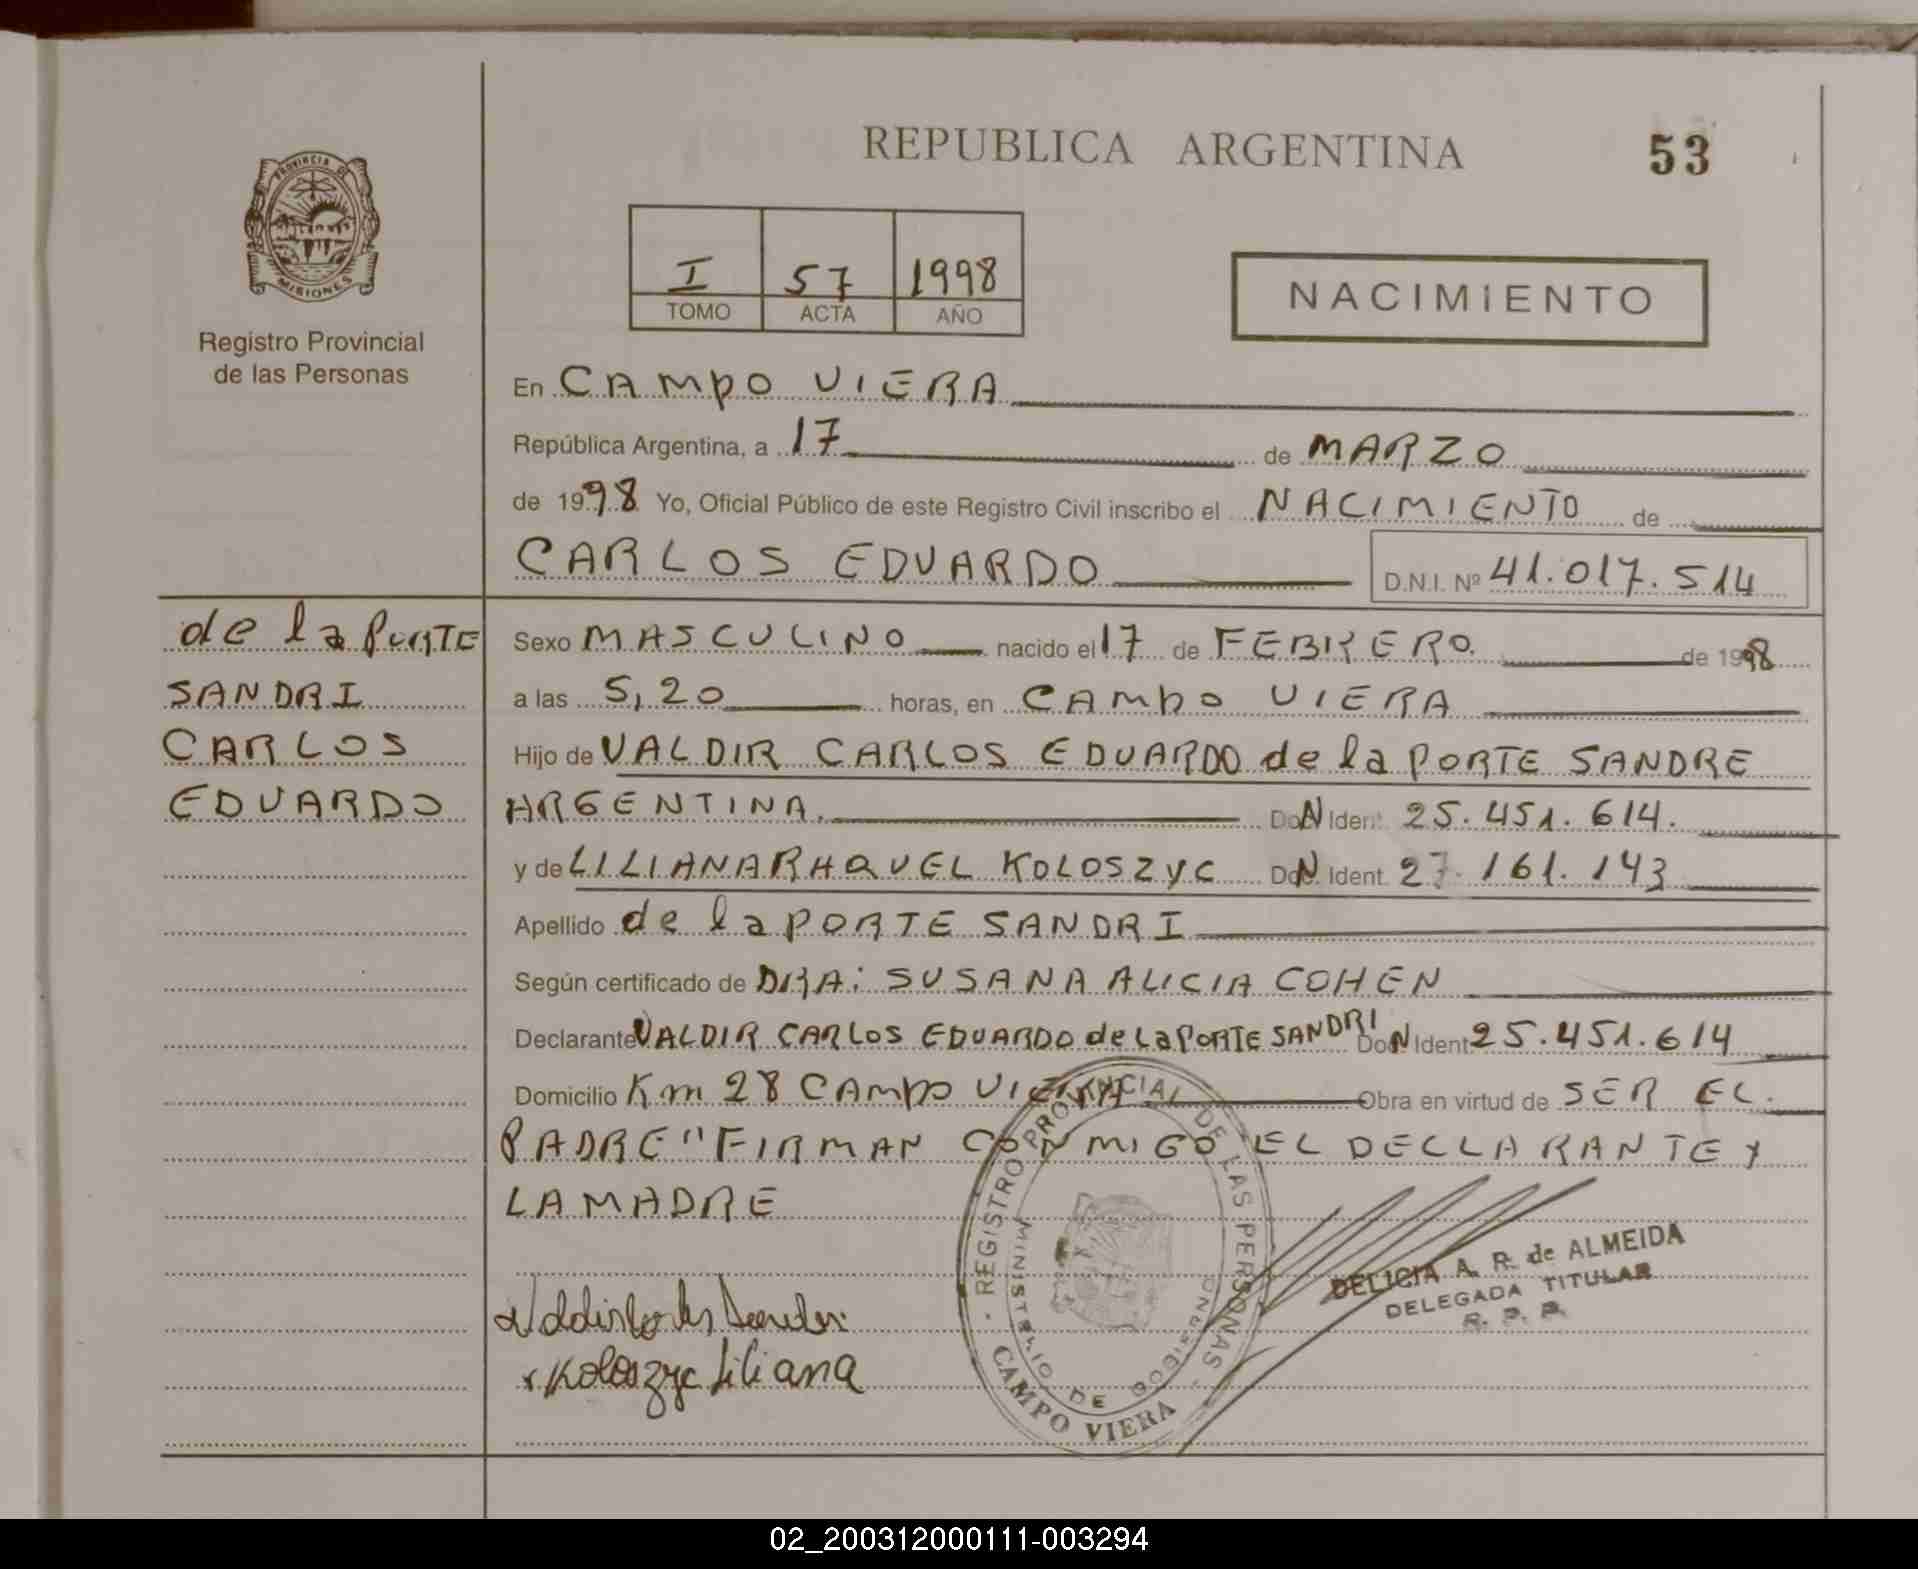 REPUBLICA ARGENTINA
53
PROVINCIA DE
MISIONES
Registro Provincial
de las Personas
I 57 1998
TOMO ACTA AÑO
NACIMIENTO
En CAMPO VIERA
República Argentina, a 17 de MARZO
de 1998 Yo, Oficial Público de este Registro Civil inscribo el NACIMIENTO de
CARLOS EDUARDO D.N.I. Nº 41.017.514
de la PORTE
SANDRI
CARLOS
EDUARDO
Sexo MASCULINO nacido el 17 de FEBRERO. de 1998
a las 5,20 horas, en CAMPO VIERA
Hijo de VALDIR CARLOS EDUARDO de la PORTE SANDRE
ARGENTINA. Doc N Ident 25.451.614.
y de LILIANA RAQUEL KOLOSZYC Doc N Ident. 27.161.143
Apellido de la PORTE SANDRI
Según certificado de DRA: SUSANA ALICIA COHEN
Declarante VALDIR CARLOS EDUARDO de La PORTE SANDRI Doc N Ident 25.451.614
Domicilio Km 28 CAMPO VIERA Obra en virtud de SER EL.
PADRE" FIRMAN CONMIGO EL DECLLARANTE y
LA MADRE
REGISTRO PROVINCIAL DE LAS PERSONAS
MINISTERIO DE GOBIERNO
CAMPO VIERA
DELICIA A. R. de ALMEIDA
DELEGADA TITULAR
R. P. P.
Koloszyc Liliana
02_200312000111-003294